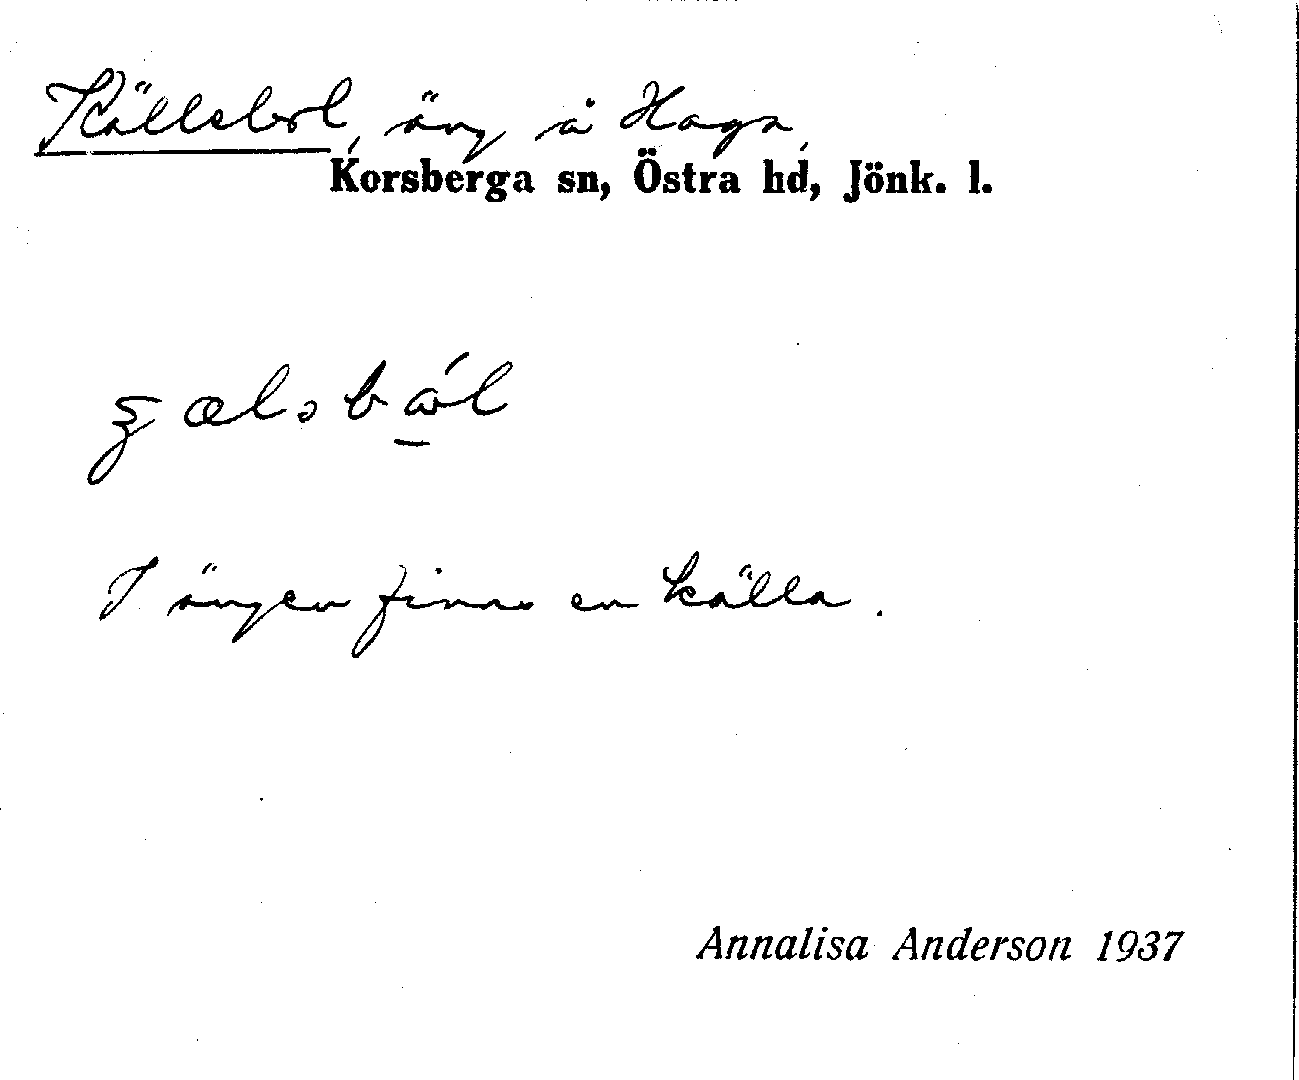 Källsbol, äng å Haga,
Korsberga sn, Östra hd, Jönk. l.
I ängen finns en källa.
Annalisa Anderson 1937